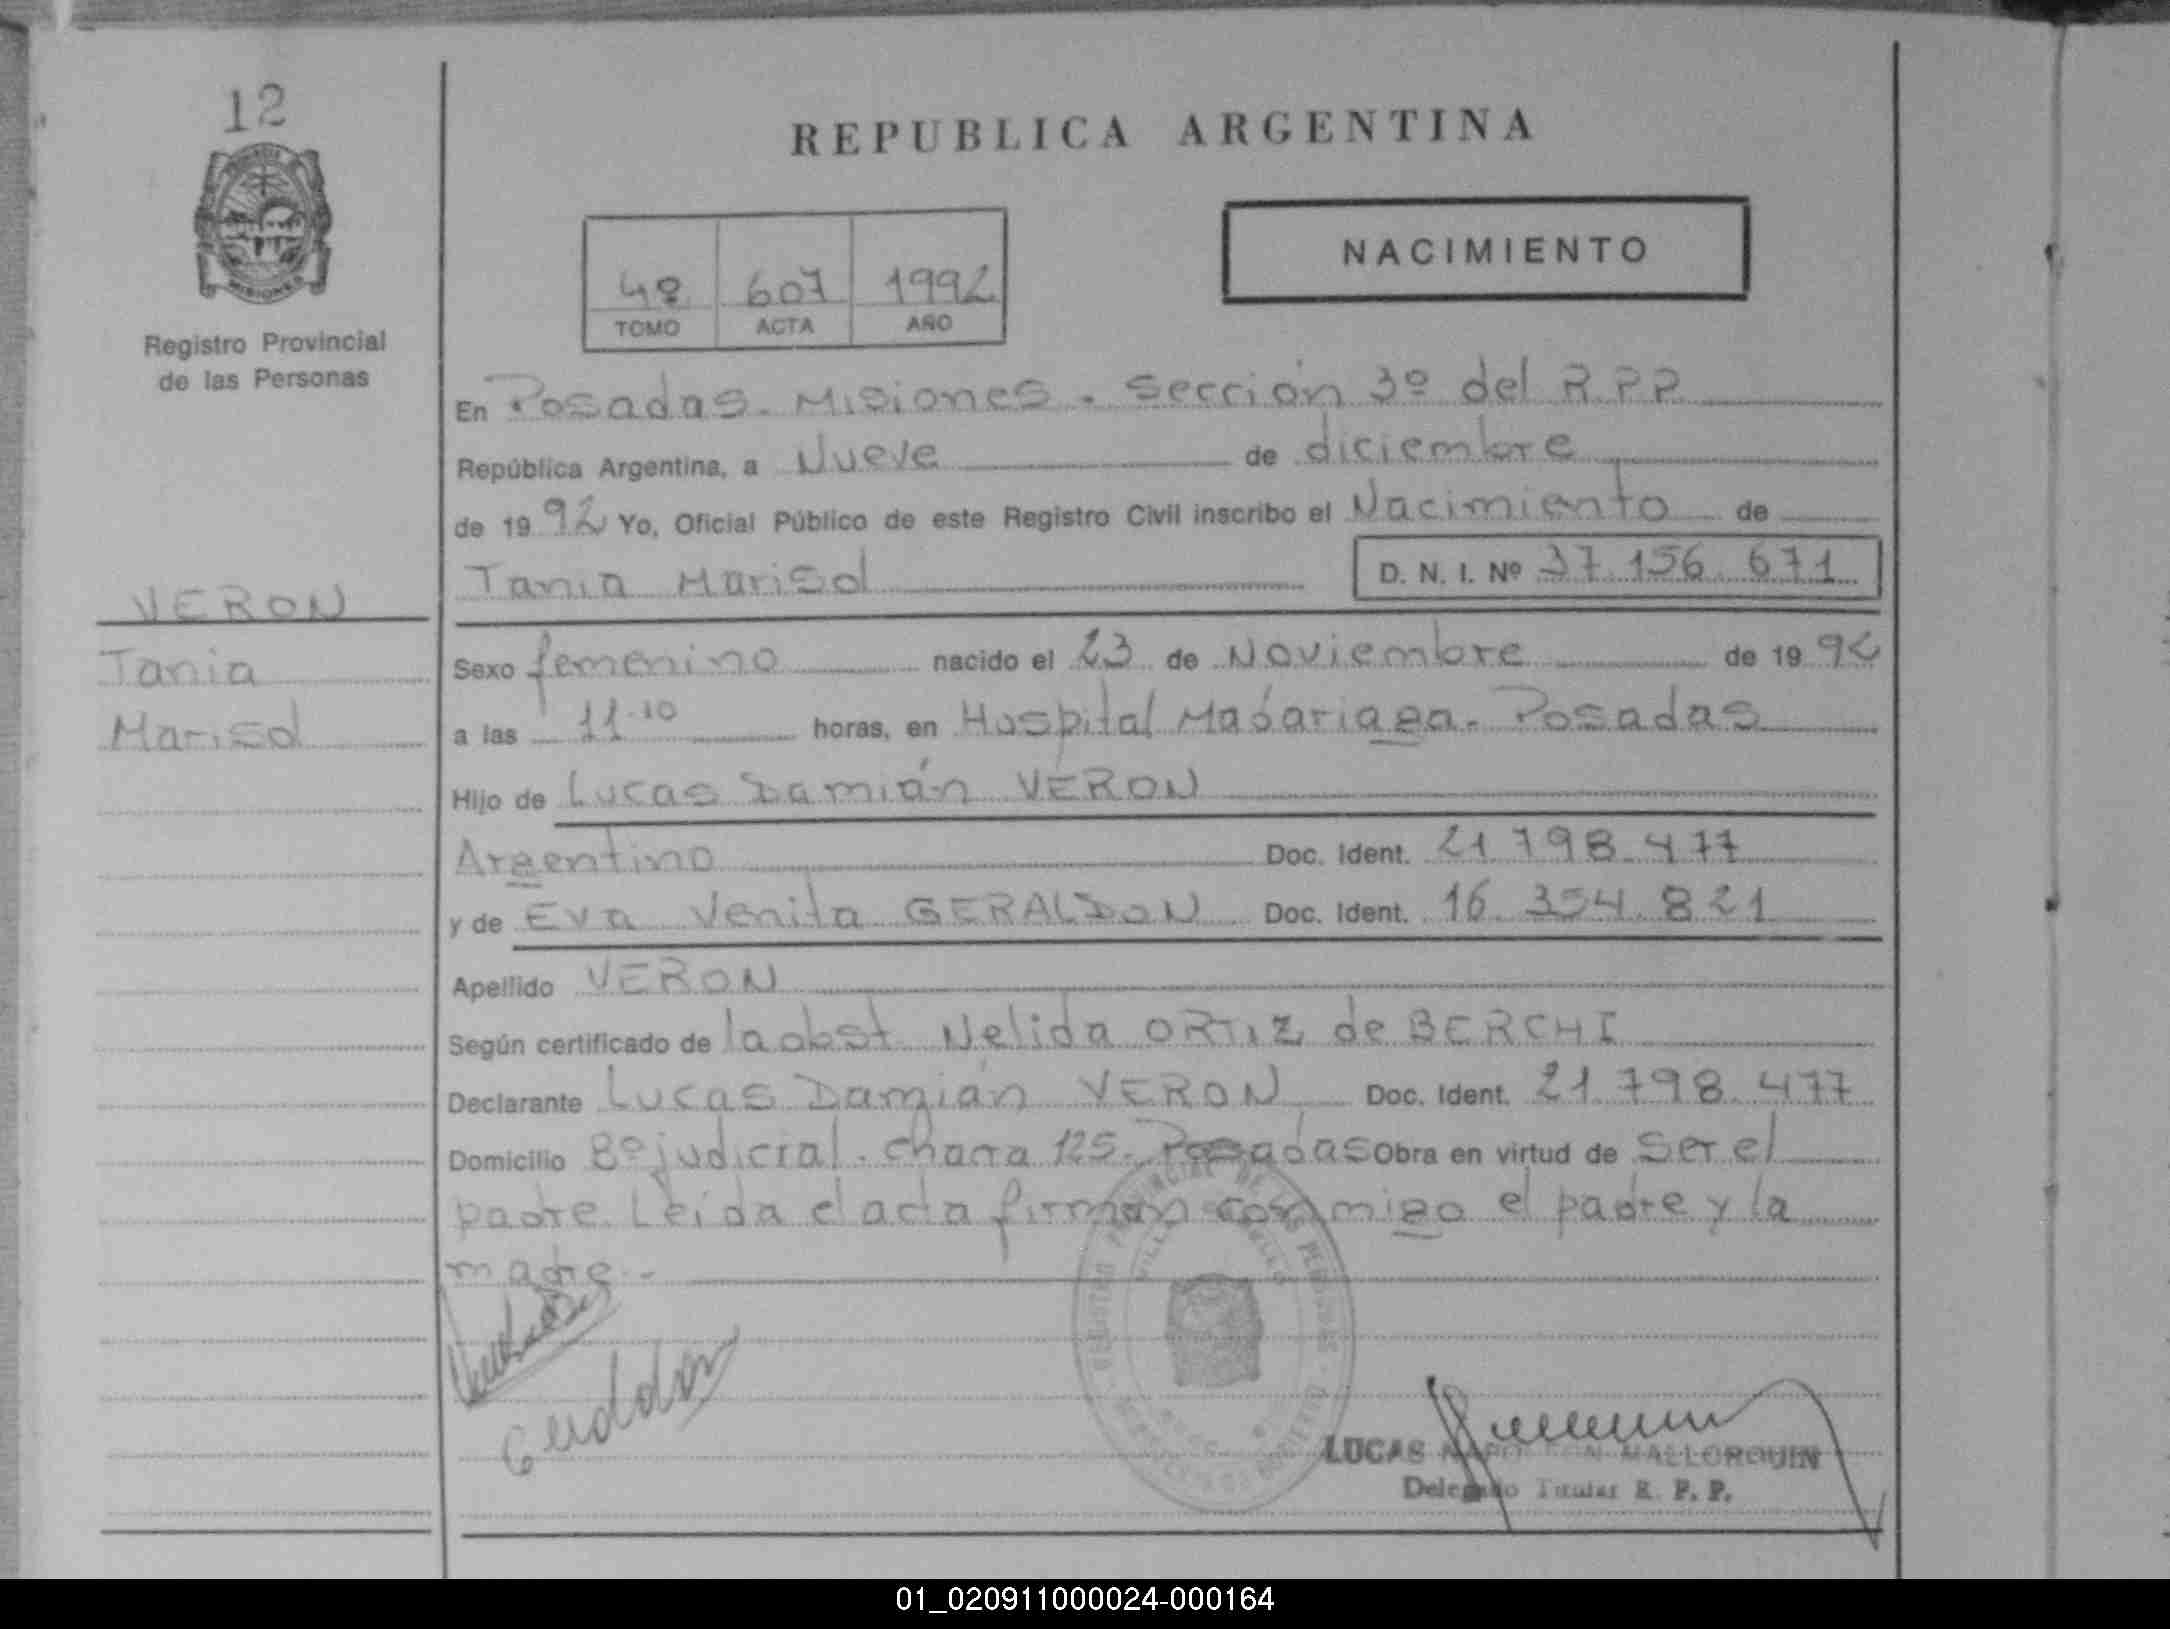 12
MISIONES
Registro Provincial
de las Personas
VERON
Tania
Marisol
REPUBLICA ARGENTINA
NACIMIENTO
4º 607 1992
TOMO ACTA AÑO
En Posadas. Misiones. Sección 3º del R.P.P.
República Argentina, a Nueve de diciembre
de 1992 Yo, Oficial Público de este Registro Civil inscribo el Nacimiento de
Tania Marisol D. N. I. Nº 37.156.671
Sexo femenino nacido el 23 de Noviembre de 1992
a las 11.10 horas, en Hospital Madariaga. Posadas
Hijo de Lucas Damián VERON
Argentino Doc. Ident. 21.798.477
y de Eva Venita GERALDON Doc. Ident. 16.354.821
Apellido VERON
Según certificado de la obst Nelida ORTIZ de BERCHI
Declarante Lucas Damián VERON Doc. Ident. 21.798.477
Domicilio Bº judicial. chacra 125. Posadas Obra en virtud de ser el
padre. Leida el acta firman conmigo el padre y la
madre.-
LUCAS MALLORQUIN
Delegado Titular R. P. P.
01_020911000024-000164